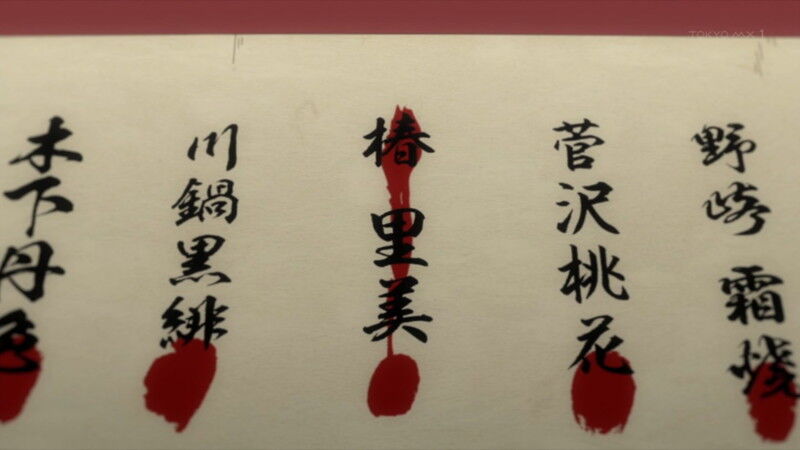 TOKYO MX 1
野崎 霜焼
菅沢桃花
椿 里美
川鍋黒緋
木下丹色